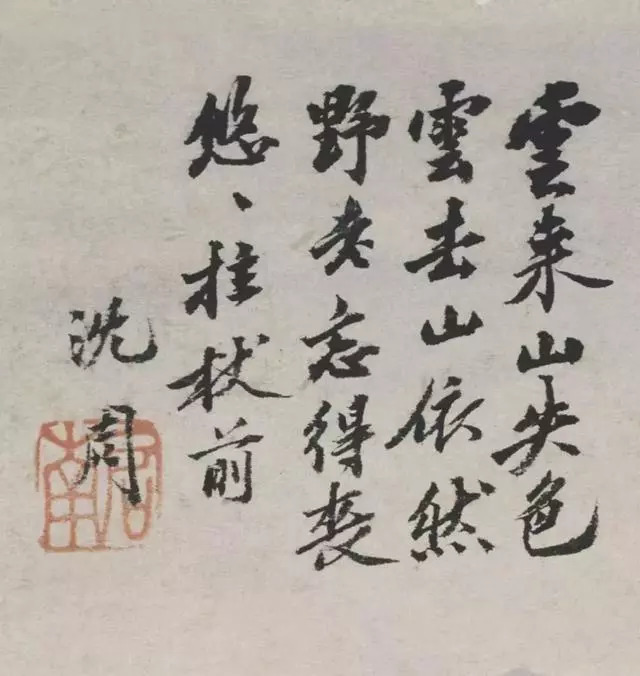 雲来山失色
雲去山依然
野老忘得喪
悠〻拄杖前
沈周
啟南